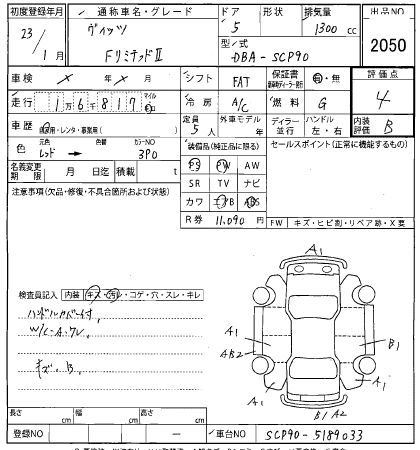 初度登録年月 通称車名・グレード ドア 形状 排気量 出品NO
23/1月 ヴィッツ FリミテッドⅡ 5 1300 cc 2050
型/式 DBA-SCP90
車検 × ×月 シフト FAT 保証書 有・無 評価点
走行 1万6817 マイル 冷房 A/C 燃料 G 4
車歴 自家用・レンタ・事業用( ) 定員 5人 外車モデル 年 ディラー 並行 ハンドル 左・右 内装評価 B
色 元色 レッド → 色替 カラーNO 3P0 装備品(純正品に限る) セールスポイント(正常に機能するもの)
名義変更期限 月 日迄 積載 t PS PW AW
注意事項(欠品・修復・不具合箇所および状態) SR TV ナビ
カワ エアB ABS
R券 11,090円 FW キズ・ヒビ割・リペア跡・X要
検査員記入 内装 キズ・汚レ・コゲ・穴・スレ・キレ
ハンドルカバー付
W/L-A・ワレ
キズ・B
A1
A1
AB2
B1
A1
A1
B1 A2
長さ cm 幅 cm 高さ cm
登録NO - 車台NO SCP90-5189033